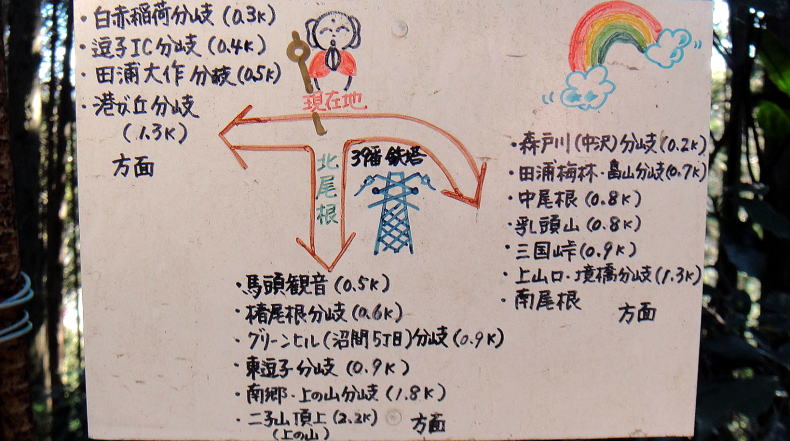 ・白赤稲荷分岐(0.3K)
・逗子IC分岐(0.4K)
・田浦大作分岐(0.5K)
・港が丘分岐
(1.3K)
方面
現在地
北尾根
39番 鉄塔
・森戸川(中沢)分岐(0.2K)
・田浦梅林・畠山分岐(0.7K)
・中尾根(0.8K)
・乳頭山(0.8K)
・三国峠(0.9K)
・上山口・境橋分岐(1.3K)
・南尾根
方面
・馬頭観音(0.5K)
・楮尾根分岐(0.6K)
・グリーンヒル(沼間5丁目)分岐(0.9K)
・東逗子分岐(0.9K)
・南郷・上の山分岐(1.8K)
・二子山頂上(2.2K) 方面
(上の山)